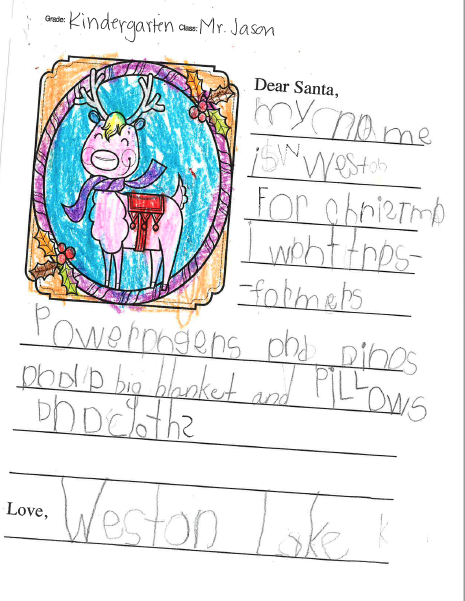 Grade: Kindergarten Class: Mr. Jason
Dear Santa,
my name
is Weston
For chrisTmp
I wont trps-
-formers
Powerpngers pnd Dinos
pnd p big blanket and PiLLows
pnd cloths
Love, Weston Lake K